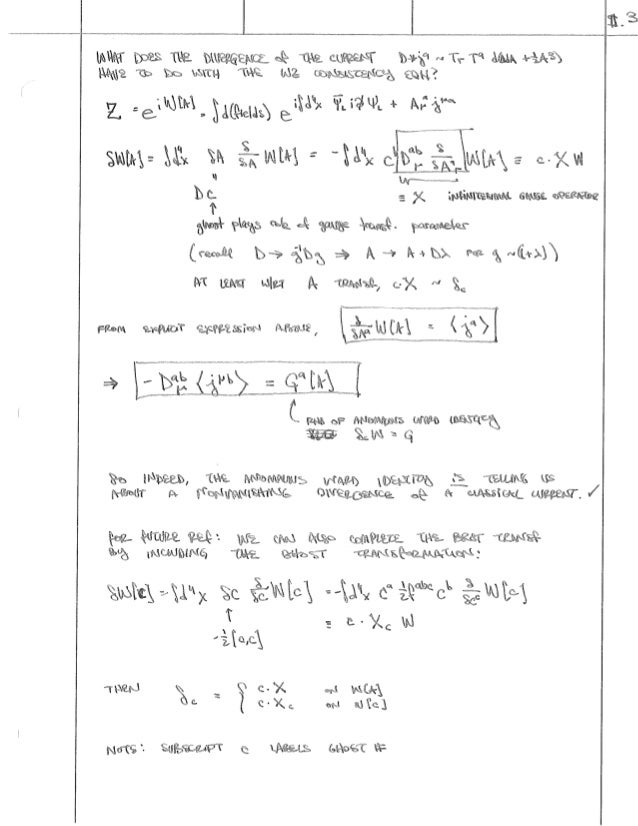 II.3
WHAT DOES THE DIVERGENCE of THE CURRENT D*j^a ~ Tr T^a d(AdA + ½A³)
HAVE TO DO WITH THE WZ CONSISTENCY EQN?
Z = e^{iW[A]} = ∫d(fields) e^{i∫d⁴x Ψ̄_L i∂̸ Ψ_L + A_μ^a j^{μa}}
SW[A] = ∫d⁴x SA δ/δA W[A] = -∫d⁴x c^b D_μ^{ab} δ/δA_μ^a W[A] ≡ c·X W
"
Dc ≡ X INFINITESIMAL GAUGE OPERATOR
↑
ghost plays role of gauge transf. parameter
(recall D → g⁻¹Dg ⇒ A → A + Dλ for g ~ (1+λ))
AT LEAST W/RT A TRANSF, c·X ~ δ_c
FROM EXPLICIT EXPRESSION ABOVE, δ/δA^a W[A] = ⟨j^a⟩
⇒ -D_μ^{ab} ⟨j^{μb}⟩ = G^a[A]
RHS OF ANOMALOUS WARD IDENTITY
δ_c W = G
So INDEED, THE ANOMALOUS WARD IDENTITY is TELLING US
ABOUT A NONVANISHING DIVERGENCE of A CLASSICAL CURRENT. ✓
for future Ref: WE CAN ALSO COMPLETE THE BRST TRANSF
By INCLUDING THE GHOST TRANSFORMATION:
SW[c] = -∫d⁴x δc δ/δc W[c] = -∫d⁴x c^a ½f^{abc} c^b δ/δc^c W[c]
↑ ≡ c·X_c W
-½[c,c]
THEN δ_c = { c·X ON W[A]
c·X_c ON W[c]
NOTE: SUBSCRIPT c LABELS GHOST #